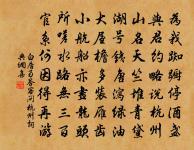 為我踟躕停酒盞
與君約略說杭州
山名天竺堆青黛
湖號錢唐瀉綠油
大屋檐多裝雁齒
小航船亦畫龍頭
所嗟水路無三百
官系何因得再遊
白居易答客問杭州